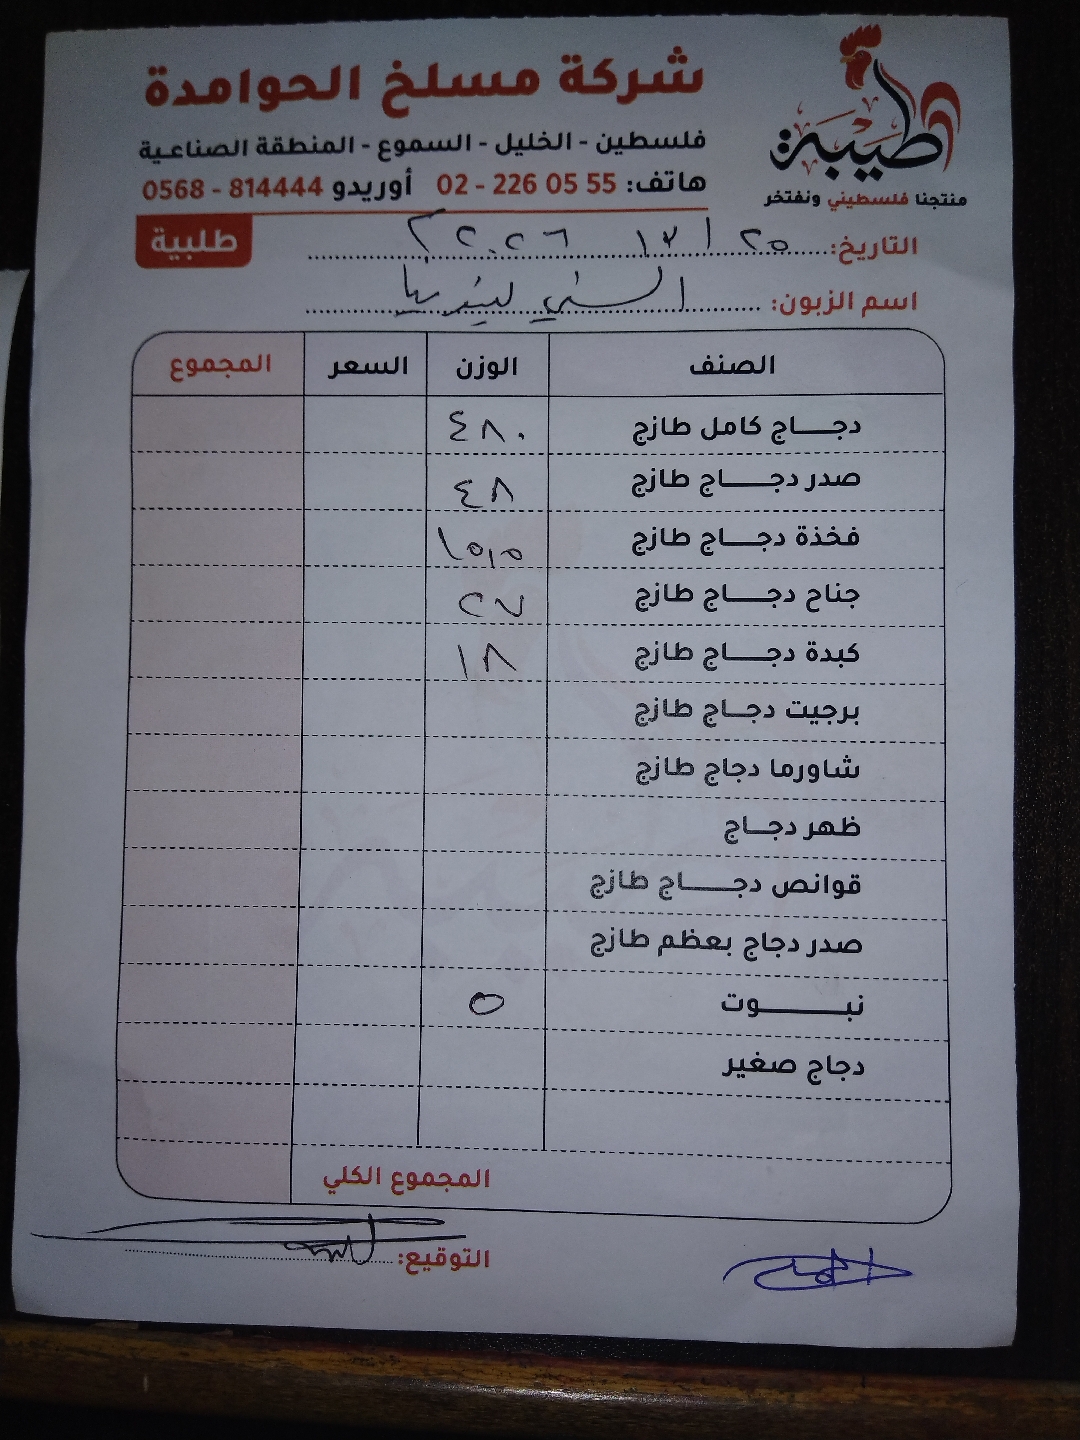 طيبة
منتجنا فلسطيني ونفتخر
شركة مسلخ الحوامدة
فلسطين - الخليل - السموع - المنطقة الصناعية
هاتف: 02 - 226 05 55 أوريدو 0568 - 814444
طلبية
التاريخ: ٢٠٢٦
اسم الزبون: السني
الصنف الوزن السعر المجموع
دجاج كامل طازج ٤٨٠
صدر دجاج طازج ٤٨
فخذة دجاج طازج ١٥,٥
جناح دجاج طازج ٢٧
كبدة دجاج طازج ١٨
برجيت دجاج طازج
شاورما دجاج طازج
ظهر دجاج
قوانص دجاج طازج
صدر دجاج بعظم طازج
نبوت ٥
دجاج صغير
المجموع الكلي
التوقيع: